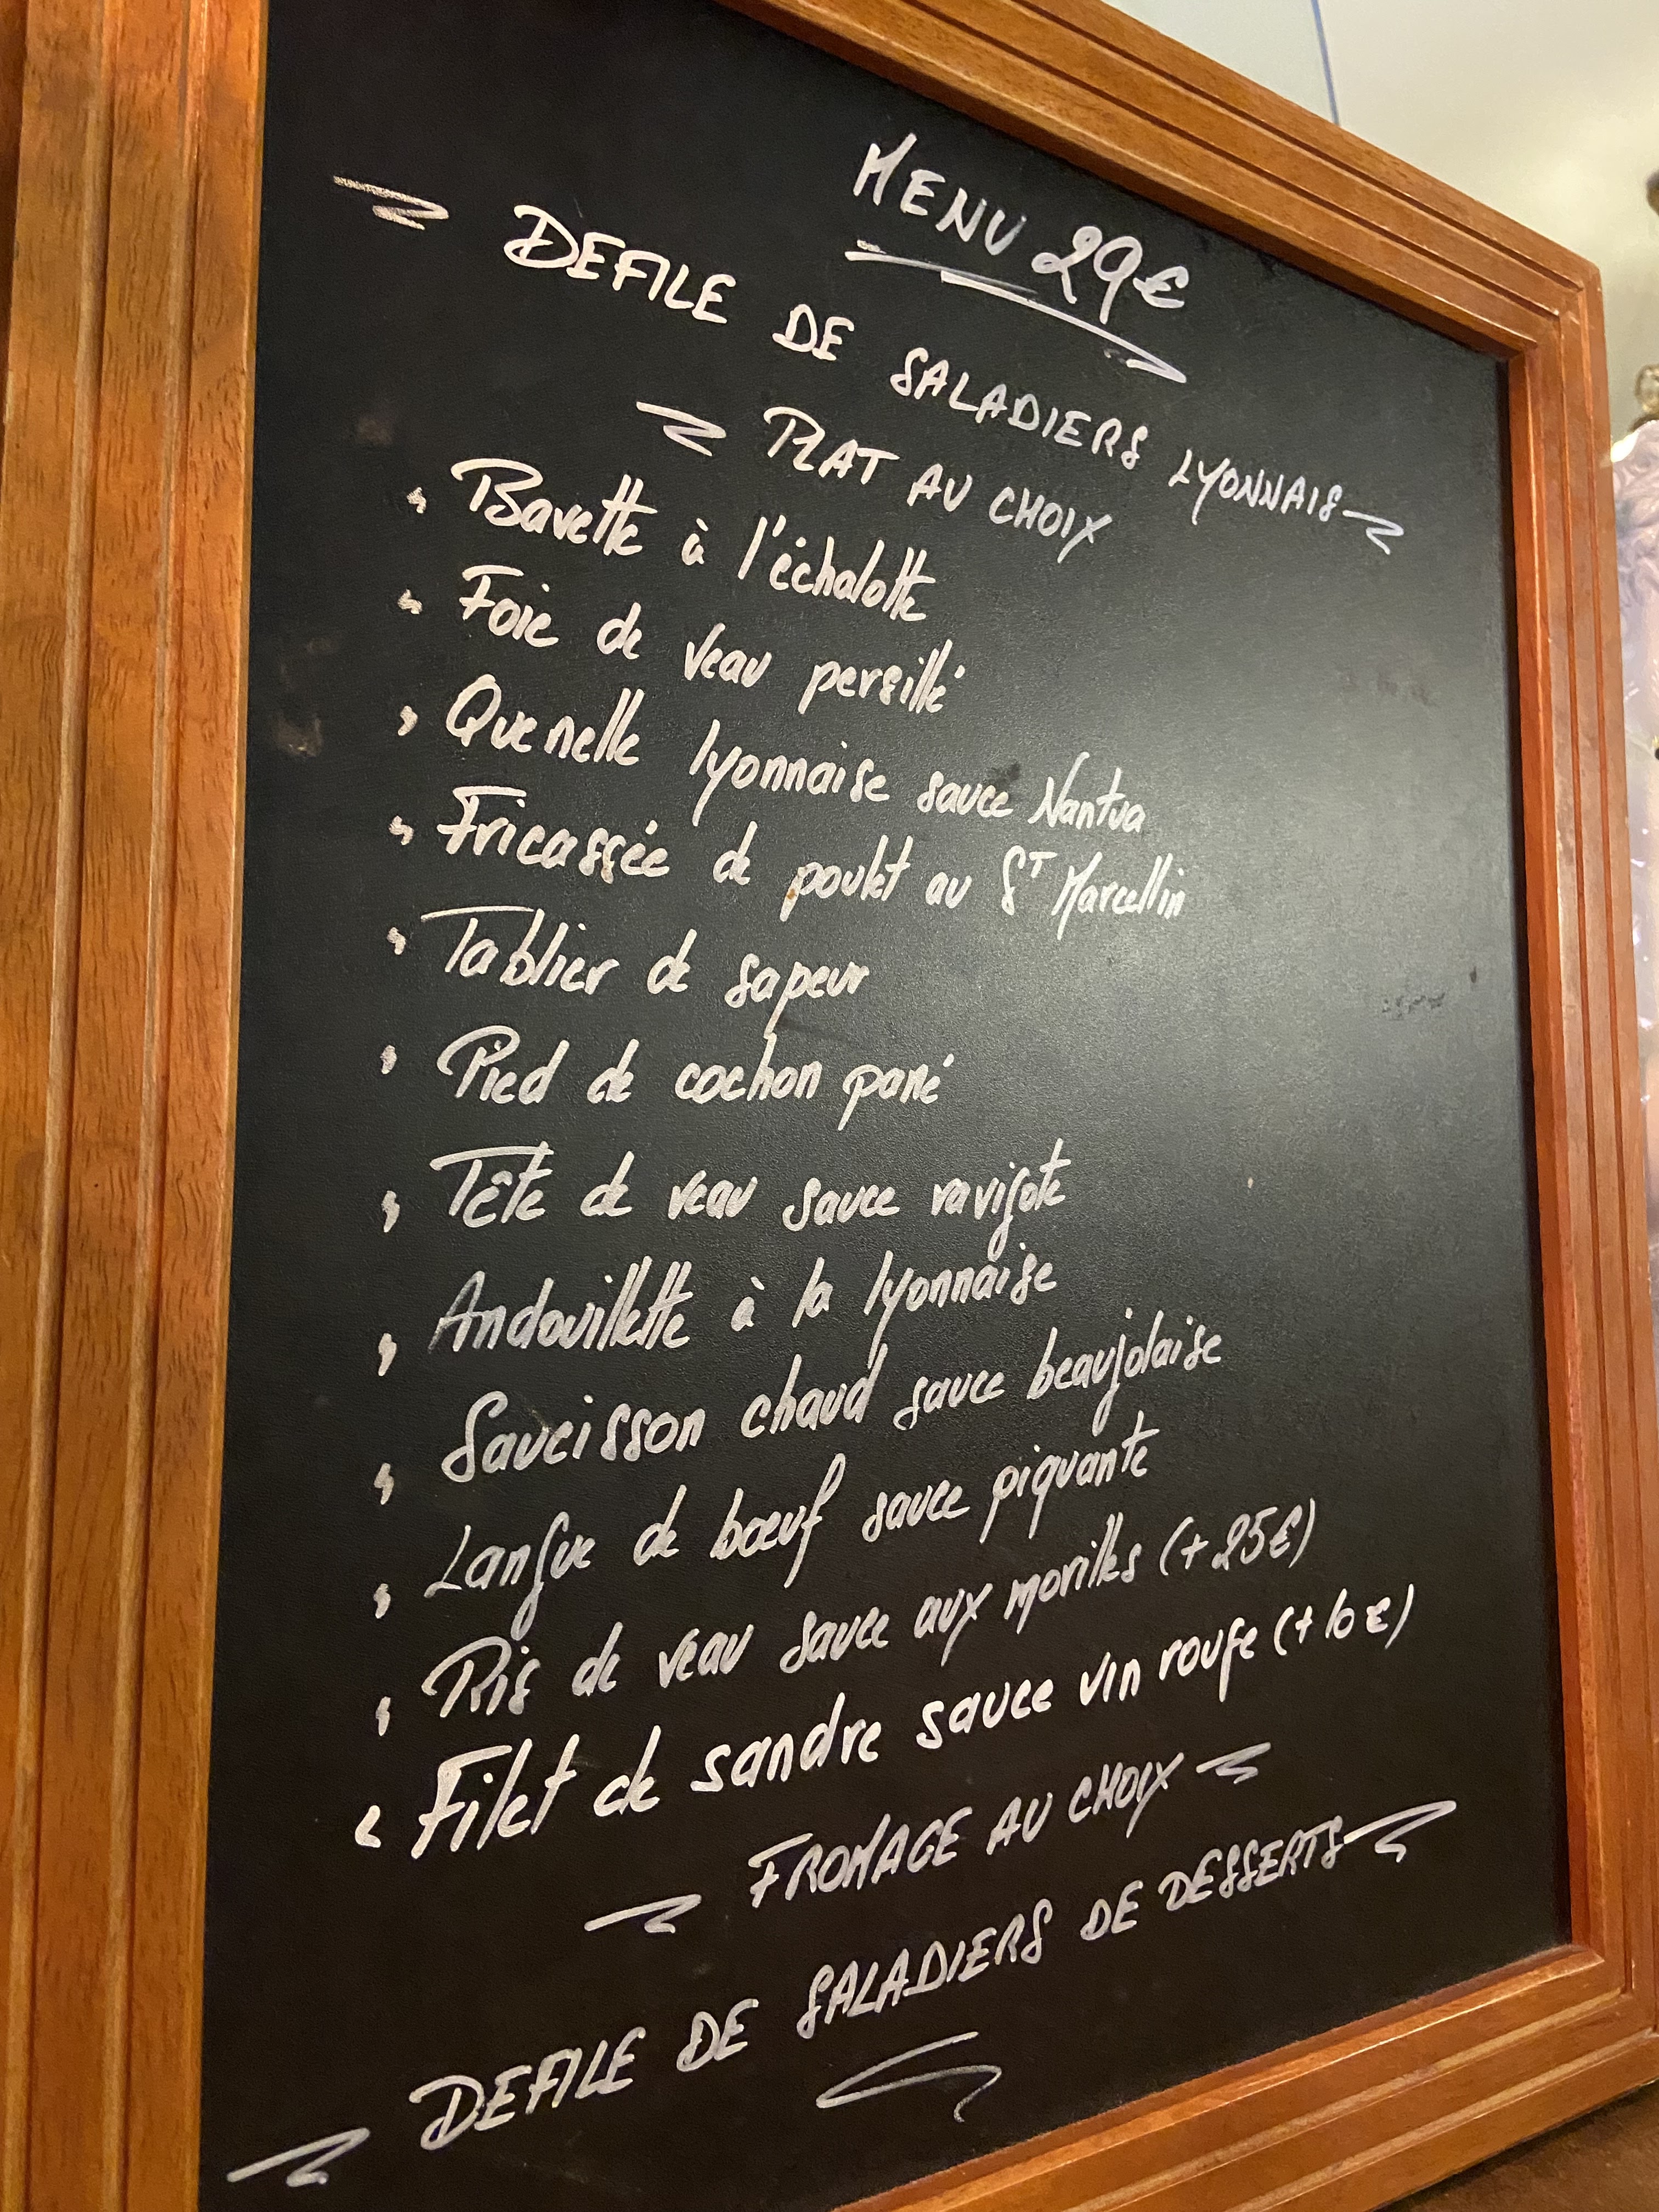 MENU 29€
DEFILE DE SALADIERS LYONNAIS
PLAT AU CHOIX
Bavette à l'échalotte
Foie de veau persillé
Quenelle lyonnaise sauce Nantua
Fricassée de poulet au ST Marcellin
Tablier de sapeur
Pied de cochon pané
Tête de veau sauce ravigote
Andouillette à la lyonnaise
Saucisson chaud sauce beaujolaise
Langue de bœuf sauce piquante
Ris de veau sauce aux morilles (+25€)
Filet de sandre sauce vin rouge (+10€)
FROMAGE AU CHOIX
DEFILE DE SALADIERS DE DESSERTS